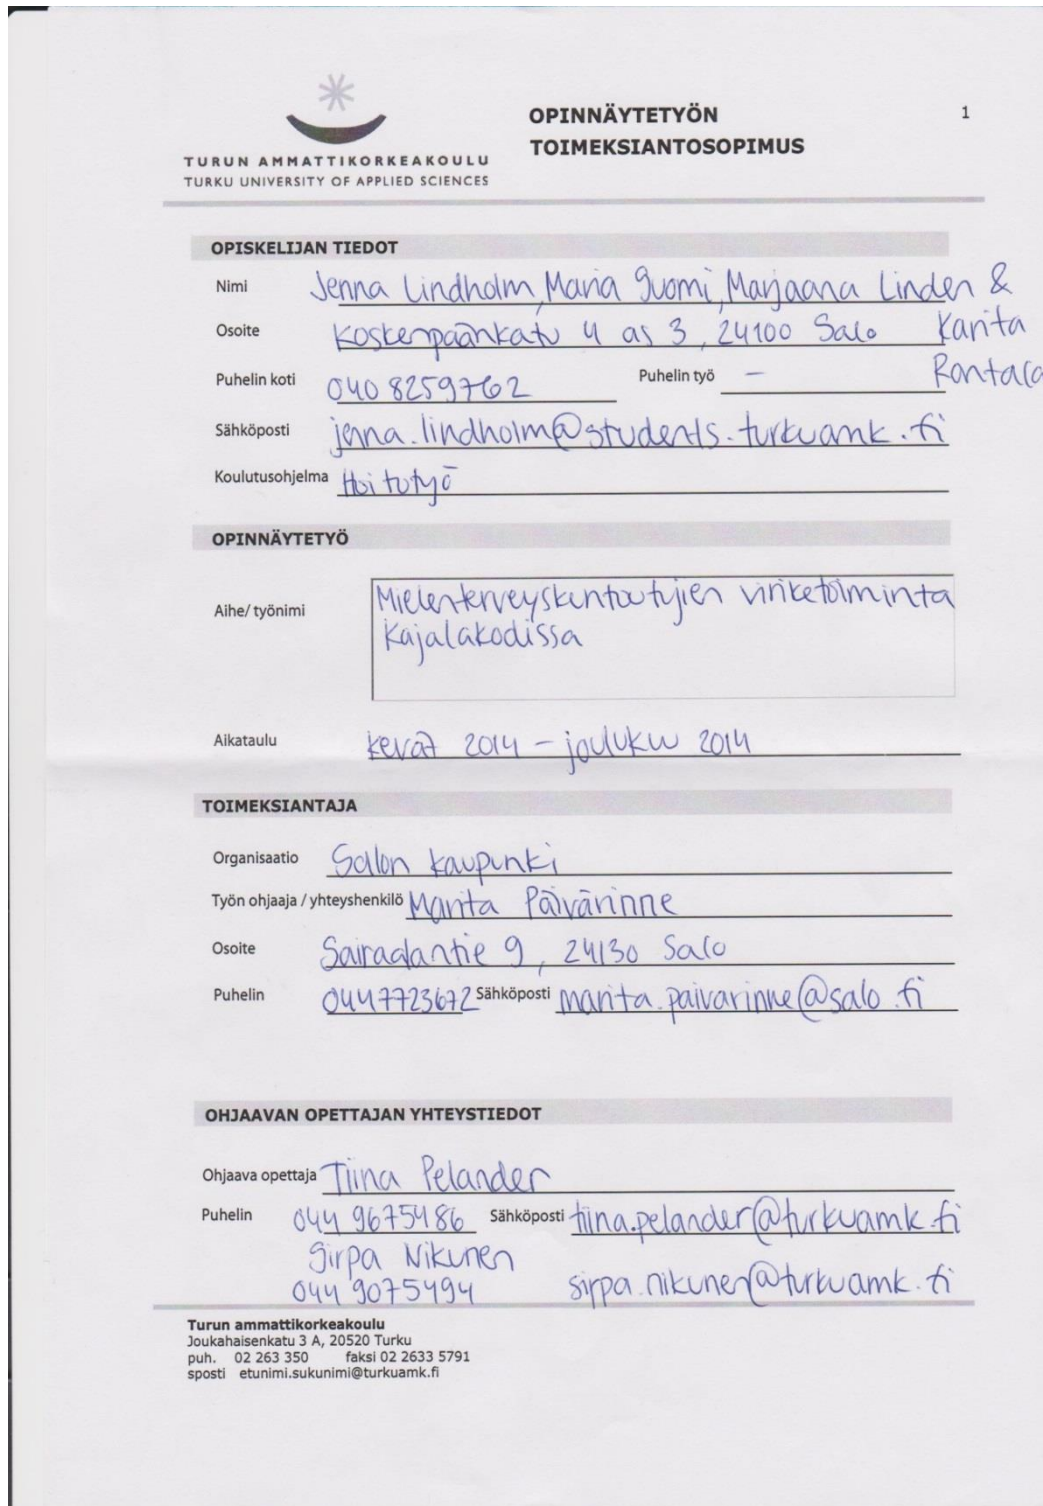 OPINNÄYTETYÖN
TOIMEKSIANTOSOPIMUS
1
TURUN AMMATTIKORKEAKOULU
TURKU UNIVERSITY OF APPLIED SCIENCES
OPISKELIJAN TIEDOT
Nimi Jenna Lindholm, Maria Suomi, Marjaana Linden &
Karita
Rantala
Osoite Koskenpäänkatu 4 as 3, 24100 Salo
Puhelin koti 040 8259762 Puhelin työ –
Sähköposti jenna.lindholm@students.turkuamk.fi
Koulutusohjelma Hoitotyö
OPINNÄYTETYÖ
Aihe/ työnimi Mielenterveyskuntoutujien viriketoiminta
Kajalakodissa
Aikataulu kevät 2014 – joulukuu 2014
TOIMEKSIANTAJA
Organisaatio Salon kaupunki
Työn ohjaaja / yhteyshenkilö Marita Päivärinne
Osoite Sairaalantie 9, 24130 Salo
Puhelin 0447723672 Sähköposti marita.paivarinne@salo.fi
OHJAAVAN OPETTAJAN YHTEYSTIEDOT
Ohjaava opettaja Tiina Pelander
Puhelin 044 9675486 Sähköposti tiina.pelander@turkuamk.fi
Sirpa Nikunen
044 9075494 sirpa.nikunen@turkuamk.fi
Turun ammattikorkeakoulu
Joukahaisenkatu 3 A, 20520 Turku
puh. 02 263 350 faksi 02 2633 5791
sposti etunimi.sukunimi@turkuamk.fi